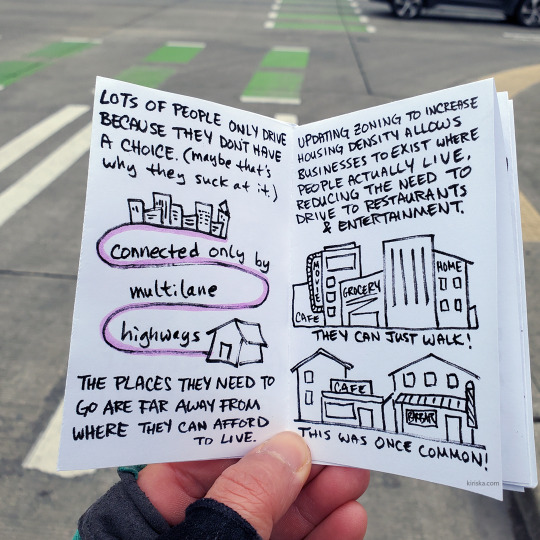 LOTS OF PEOPLE ONLY DRIVE
BECAUSE THEY DON'T HAVE
A CHOICE. (maybe that's
why they suck at it.)
Connected only by
multilane
highways
THE PLACES THEY NEED TO
GO ARE FAR AWAY FROM
WHERE THEY CAN AFFORD
TO LIVE.
UPDATING ZONING TO INCREASE
HOUSING DENSITY ALLOWS
BUSINESSES TO EXIST WHERE
PEOPLE ACTUALLY LIVE,
REDUCING THE NEED TO
DRIVE TO RESTAURANTS
& ENTERTAINMENT.
MOVIE
CAFE
GROCERY
HOME
THEY CAN JUST WALK!
CAFE
THIS WAS ONCE COMMON!
kiriska.com